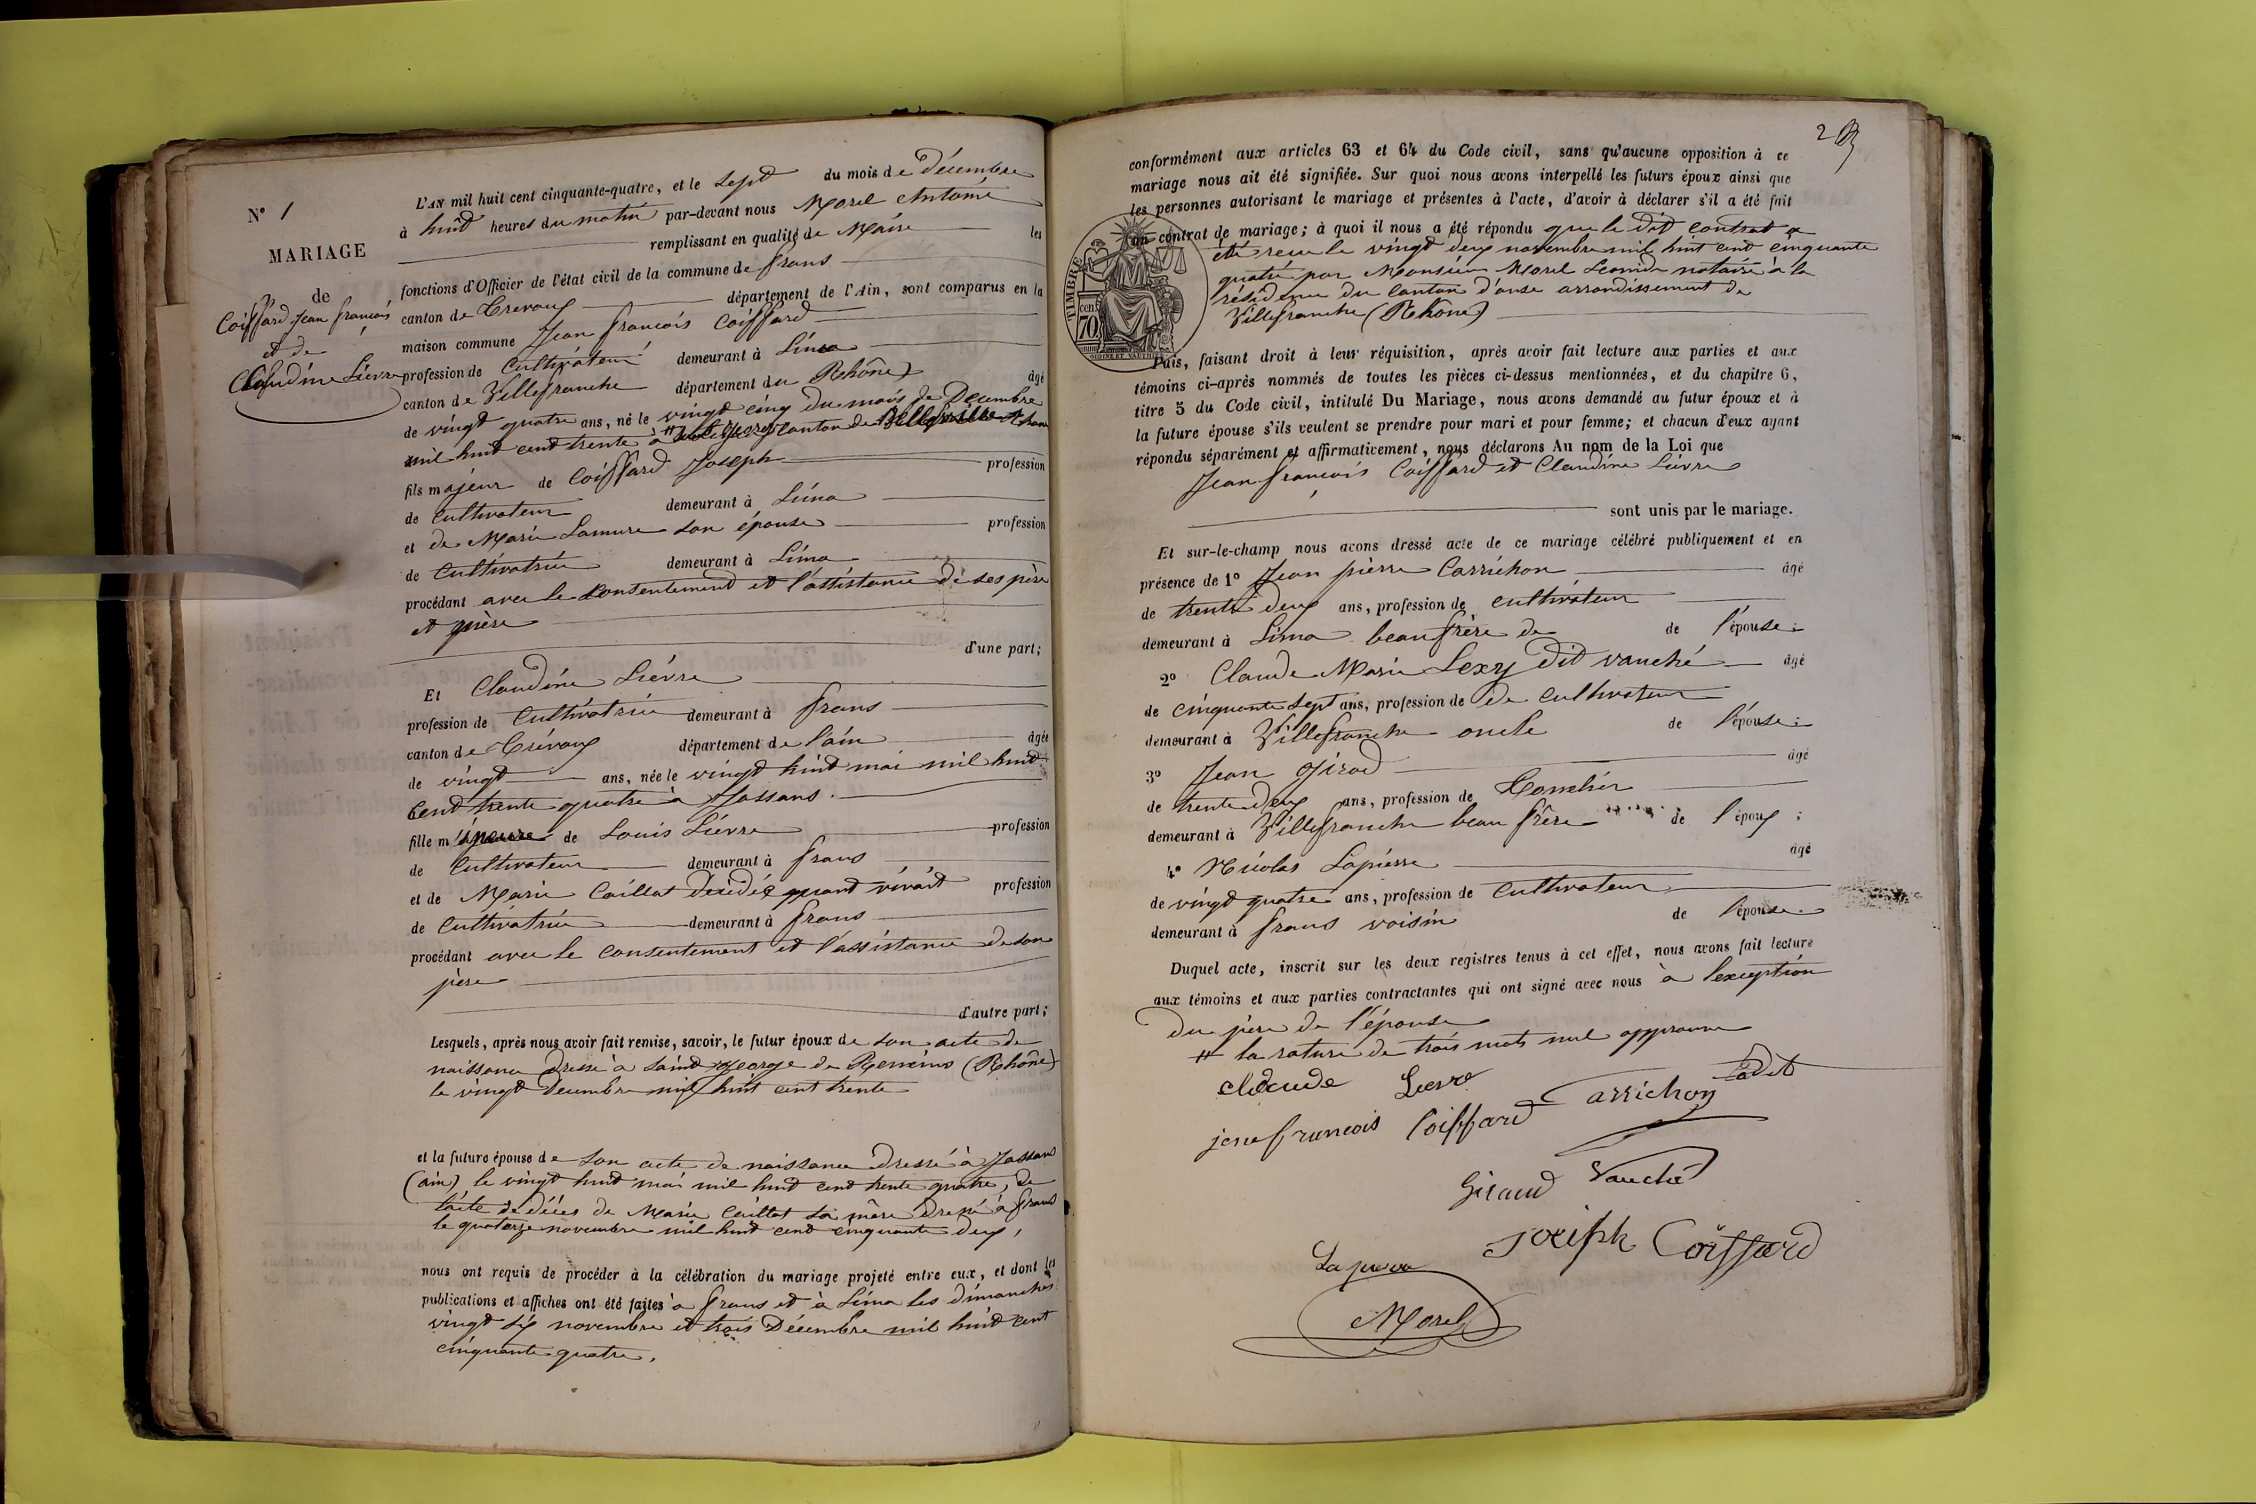 N° 1
MARIAGE
de
Coiffard Jean françois
et de
Claudine Lièvre
L'AN mil huit cent cinquante-quatre, et le sept du mois de Décembre
à huit heures du matin par-devant nous Morel Antoine
remplissant en qualité de Maire les
fonctions d'Officier de l'état civil de la commune de frans
canton de Trevoux département de l'Ain, sont comparus en la
maison commune Jean françois Coiffard
profession de Cultivateur demeurant à Lima
canton de Villefranche département du Rhône âgé
de vingt quatre ans, né le vingt cinq du mois de Décembre
mil huit cent trente à canton de
fils majeur de Coiffard Joseph profession
de cultivateur demeurant à Lima
et de Marie Lamure son épouse profession
de Cultivatrice demeurant à Lima
procédant avec le consentement et l'assistance de ses père
et mère
d'une part;
Et Claudine Lièvre
profession de Cultivatrice demeurant à frans
canton de Trévoux département de l'ain âgée
de vingt ans, née le vingt huit mai mil huit
cent trente quatre à Jassans.
fille m de Louis Lièvre profession
de Cultivateur demeurant à frans
et de Marie Caillat Décédée quand vivait profession
de Cultivatrice demeurant à frans
procédant avec le consentement et l'assistance de son
père
d'autre part;
Lesquels, après nous avoir fait remise, savoir, le futur époux de son acte de
naissance Dressé à Saint George de Reneins (Rhône)
le vingt Decembre mil huit cent trente
et la future épouse de son acte de naissance dressé à Jassans
(ain) le vingt huit mai mil huit cent trente quatre, de
l'acte de décès de Marie Caillat sa mère Dressé à frans
le quatorze novembre mil huit cent cinquante deux,
nous ont requis de procéder à la célébration du mariage projeté entre eux, et dont les
publications et affiches ont été faites à frans et à Lima les dimanches
vingt six novembre et trois Décembre mil huit cent
cinquante quatre.
conformément aux articles 63 et 64 du Code civil, sans qu'aucune opposition à ce
mariage nous ait été signifiée. Sur quoi nous avons interpellé les futurs époux ainsi que
les personnes autorisant le mariage et présentes à l'acte, d'avoir à déclarer s'il a été fait
un contrat de mariage; à quoi il nous a été répondu que le dit contrat a
été reçu le vingt deux novembre mil huit cent cinquante
quatre par Monsieur Morel notaire à la
résidence du Canton d'anse arrondissement de
Villefranche (Rhône)
TIMBRE
70 cen
Puis, faisant droit à leur réquisition, après avoir fait lecture aux parties et aux
témoins ci-après nommés de toutes les pièces ci-dessus mentionnées, et du chapitre 6,
titre 5 du Code civil, intitulé Du Mariage, nous avons demandé au futur époux et à
la future épouse s'ils veulent se prendre pour mari et pour femme; et chacun d'eux ayant
répondu séparément et affirmativement, nous déclarons Au nom de la Loi que
Jean françois Coiffard et Claudine Lièvre
sont unis par le mariage.
Et sur-le-champ nous avons dressé acte de ce mariage célébré publiquement et en
présence de 1° Jean pierre Carrichon âgé
de trente deux ans, profession de cultivateur
demeurant à Lima beau frère de de l'épouse;
2° Claude Marie Lexy dit vauché âgé
de cinquante sept ans, profession de de cultivateur
demeurant à Villefranche oncle de l'épouse;
3° Jean Girod âgé
de trente deux ans, profession de
demeurant à Villefranche beau frère de l'époux;
4° Nicolas Lapierre âgé
de vingt quatre ans, profession de cultivateur
demeurant à frans voisin de l'épouse.
Duquel acte, inscrit sur les deux registres tenus à cet effet, nous avons fait lecture
aux témoins et aux parties contractantes qui ont signé avec nous à l'exception
du père de l'épouse
# la rature de trois mots nul approuvé
Lievre
Coiffard Carrichon
Giraud Vauché
Joseph Coiffard
Morel